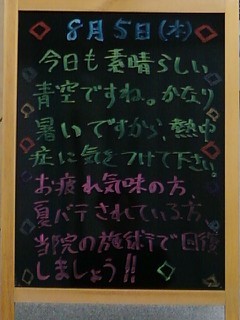 8月5日(木)
今日も素晴らしい
青空ですね。かなり
暑いですから、熱中
症に気をつけて下さい。
お疲れ気味の方、
夏バテされている方、
当院の施術で回復
しましょう!!